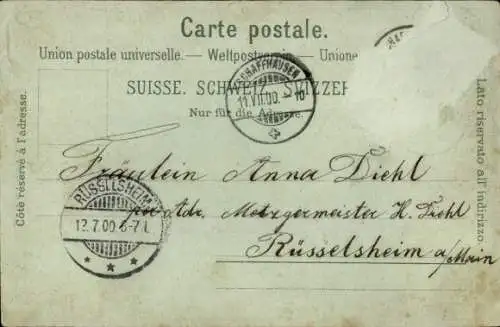 Carte postale.
Union postale universelle. — Weltpostverein — Unione
SUISSE. SCHWEIZ. SVIZZER
Nur für die Adresse.
Côté réservé à l'adresse.
Lato riservato all' indirizzo.
SCHAFFHAUSEN
11.VII.00. - 10
Fräulein Anna Diehl
per Adr. Metzgermeister H. Diehl
Rüsselsheim a/Main
RÜSSELSHEIM
12.7.00 6-7 N.